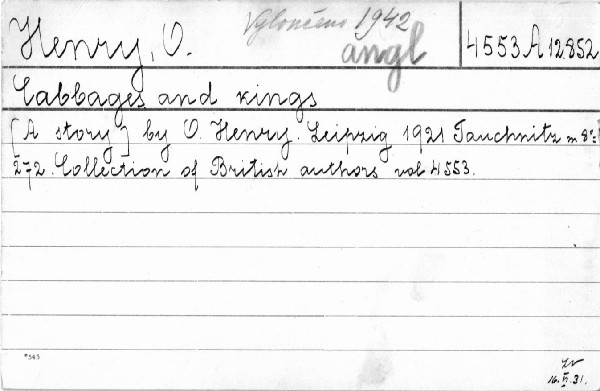 Henry, O. Vyloučeno 1942
angl 4553 A 12852
Cabbages and kings
[A story] by O. Henry. Leipzig 1921 Tauchnitz m 8°
272. Collection of British authors vol 4553.
*545
16.VI.31.